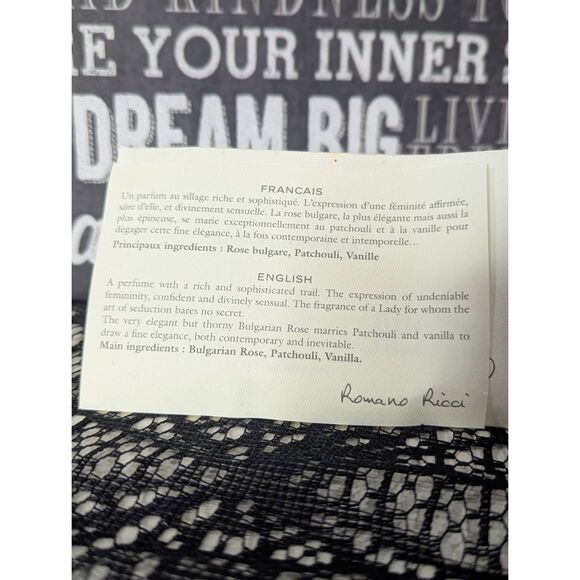 KINDNESS TO
E YOUR INNER S
DREAM BIG LIVI
FRANCAIS
Un parfum au sillage riche et sophistiqué. L'expression d'une féminité affirmée,
sûre d'elle, et divinement sensuelle. La rose bulgare, la plus élégante mais aussi la
plus épineuse, se marie exceptionnellement au patchouli et à la vanille pour
dégager cette fine élégance, à la fois contemporaine et intemporelle…
Principaux ingredients : Rose bulgare, Patchouli, Vanille
ENGLISH
A perfume with a rich and sophisticated trail. The expression of undeniable
femininity, confident and divinely sensual. The fragrance of a Lady for whom the
art of seduction bares no secret.
The very elegant but thorny Bulgarian Rose marries Patchouli and vanilla to
draw a fine elegance, both contemporary and inevitable.
Main ingredients : Bulgarian Rose, Patchouli, Vanilla.
Romano Ricci